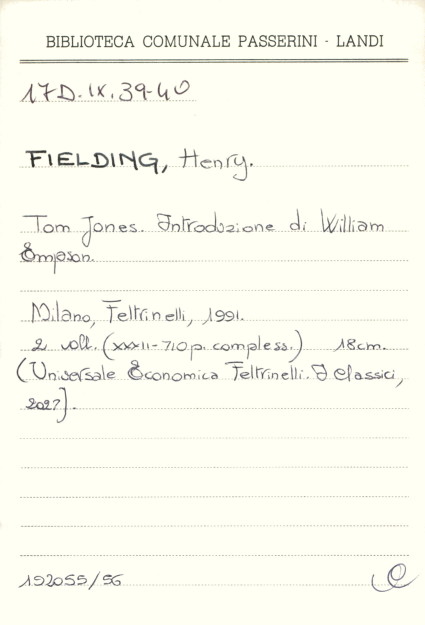 BIBLIOTECA COMUNALE PASSERINI - LANDI
17D.IX.39-40
FIELDING, Henry.
Tom Jones. Introduzione di William
Empson.
Milano, Feltrinelli, 1991.
2 voll. (XXXII-710 p. compless.) 18cm.
(Universale Economica Feltrinelli. I Classici,
2027).
192055/56